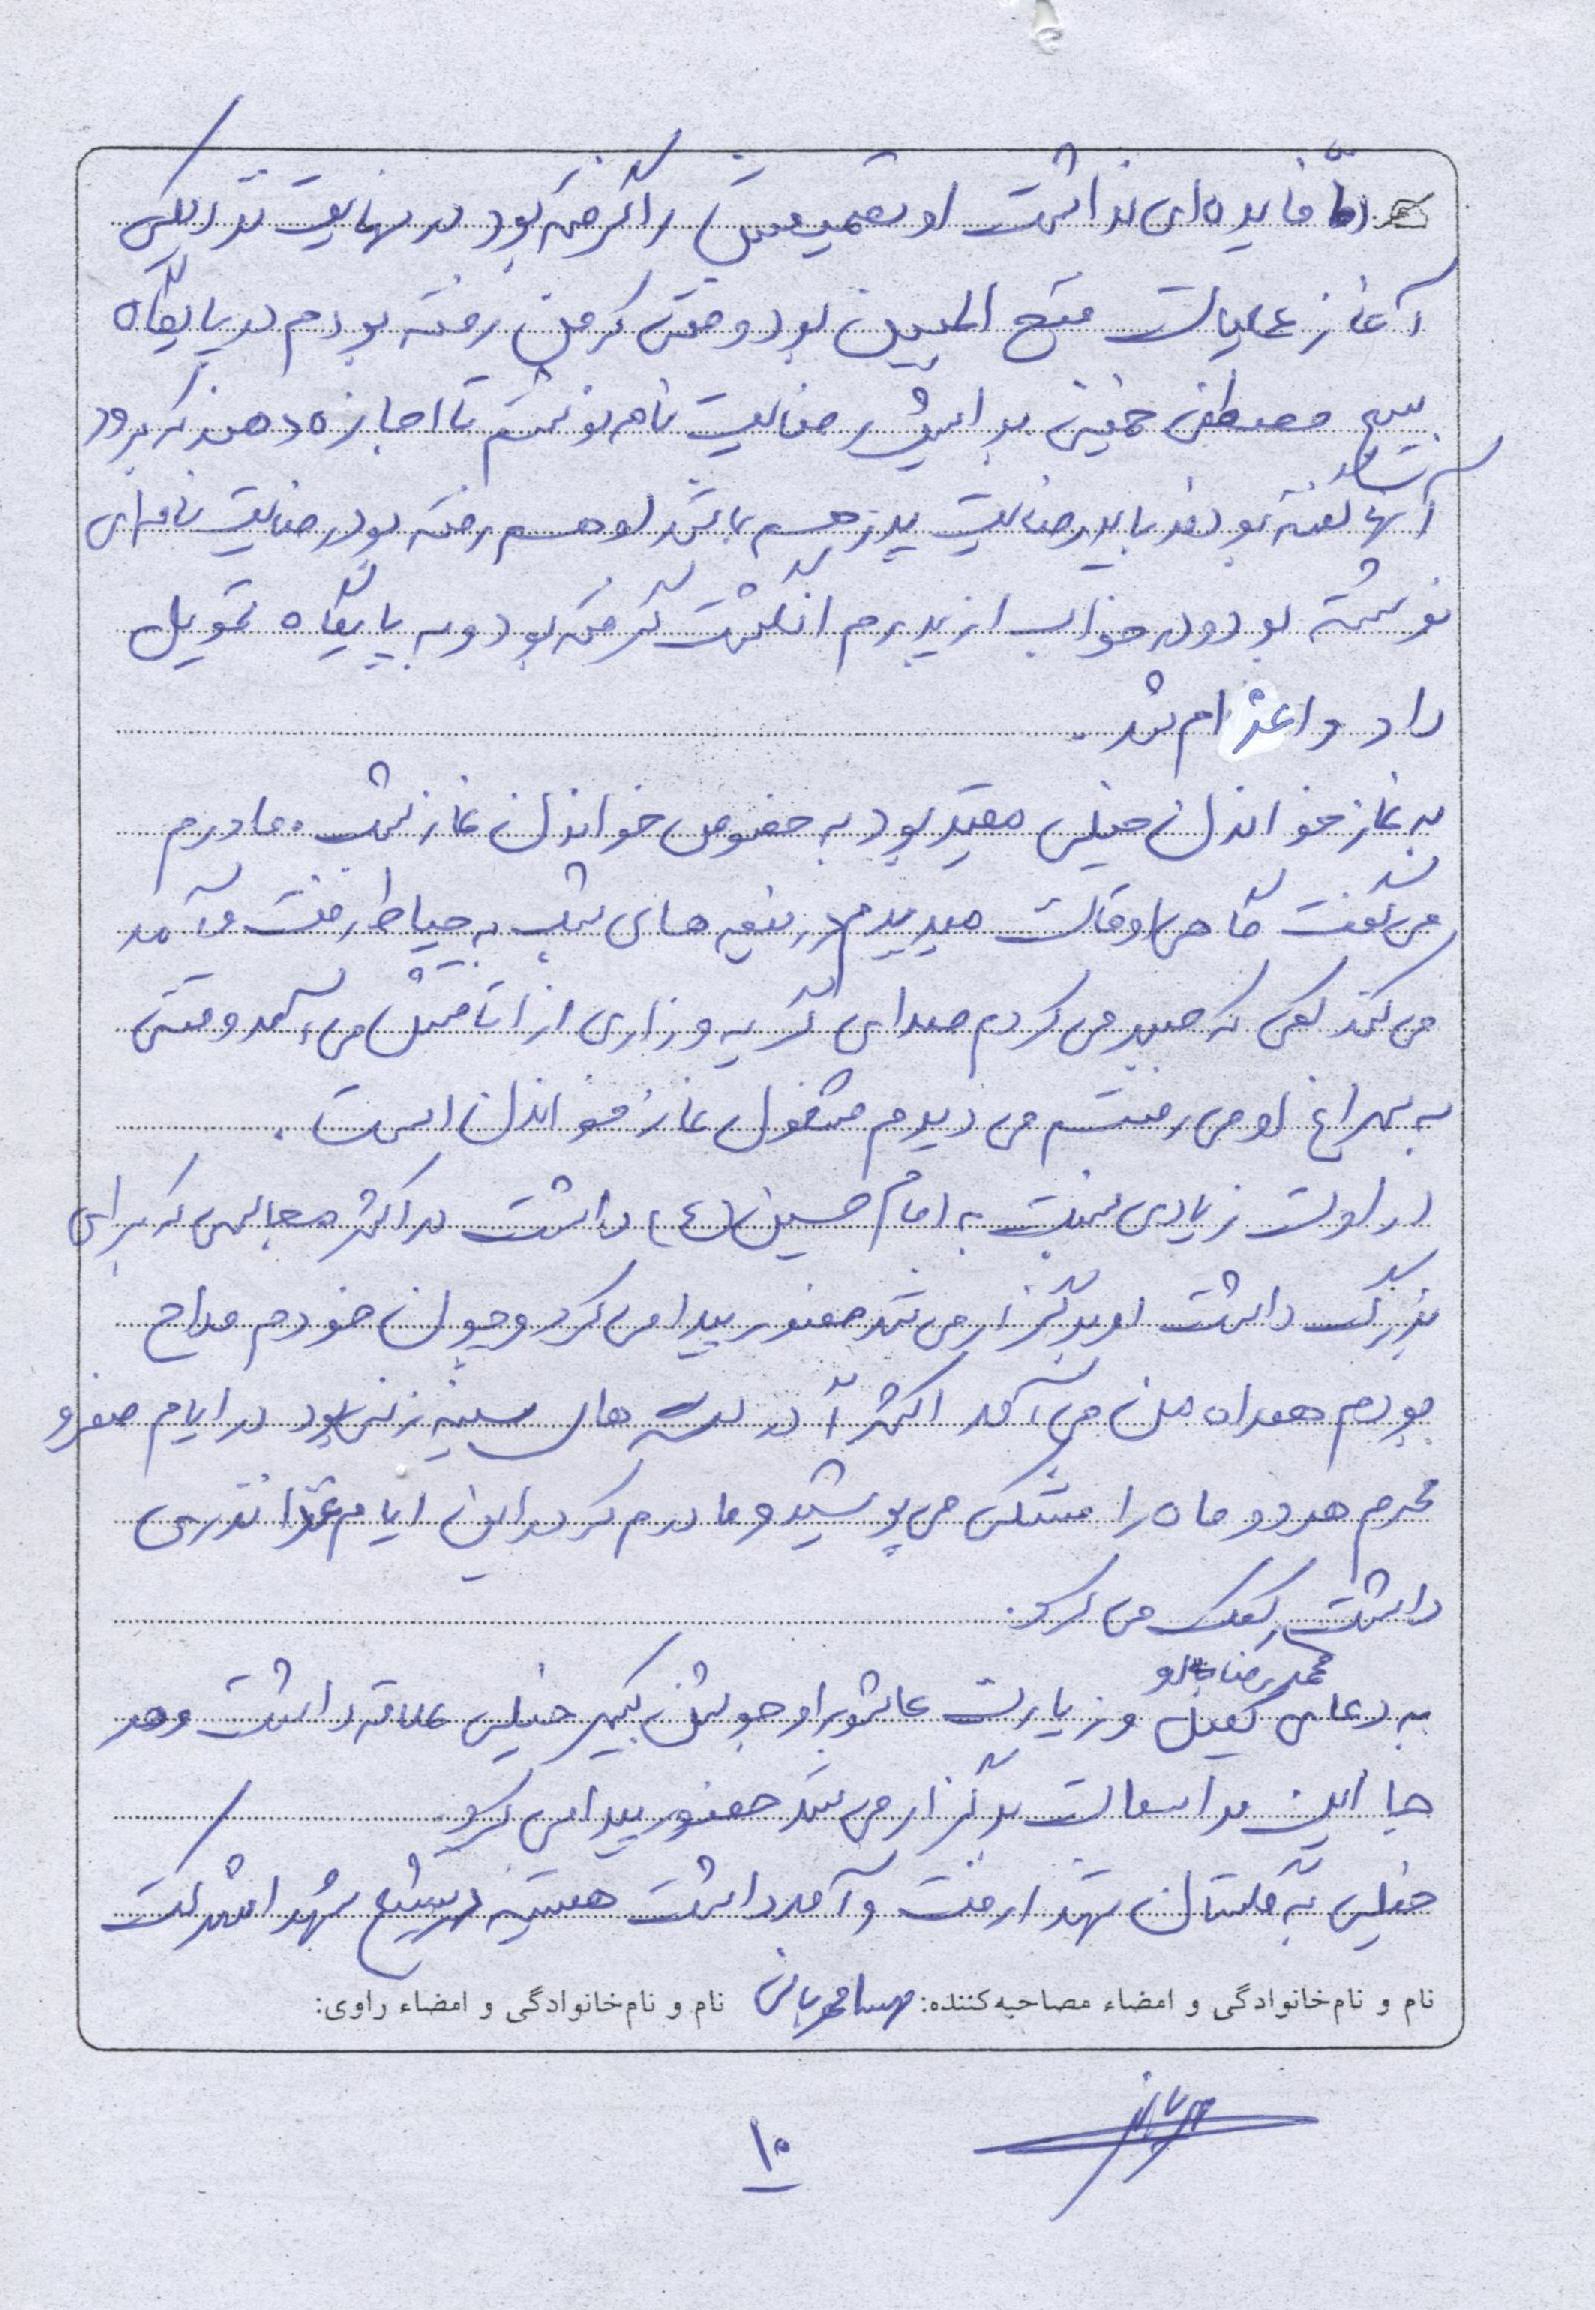 اما فایده‌ای نداشت او تصمیمش را گرفته بود در نهایت نزدیکی
آغاز عملیات فتح المبین بود وقتی که من رفته بودم در پایگاه
بسیج مصطفی خمینی برایش رضایت نامه نوشتم تا اجازه دهند که برود
آنها گفته بودند باید رضایت پدر هم باشد او هم رفته بود رضایت نامه‌ای
نوشته بود و در خواب از پدرم انگشت گرفته بود و به پایگاه تحویل
داد و اعزام شد.
به نماز خواندن خیلی مقید بود به خصوص خواندن نماز شب. مادرم
می گفت گاهی اوقات میدیدم در نیمه های شب به حیاط رفت و آمد
می کند کمی که صبر می کردم صدای گریه و زاری از اتاقش می آمد وقتی
به سراغ او می رفتم می دیدم مشغول نماز خواندن است.
ارادت زیادی نسبت به امام حسین (ع) داشت در اکثر مجالس که برای
بزرگداشت او برگزار می شد حضور پیدا می کرد و چون خودم مداح
بودم همراه من می آمد اکثراً در دسته های سینه زنی بود در ایام صفر و
محرم هر دو ماه را مشکی می پوشید و مادرم که در این ایام عزا نذری
داشت کمک می کرد.
محمدرضا
به دعای کمیل و زیارت عاشورا و جوشن کبیر خیلی علاقه داشت و هر
جا این مراسمات برگزار می شد حضور پیدا می کرد.
خیلی به گلستان شهدا رفت و آمد داشت همیشه در تشیع شهدا شرکت
نام و نام‌خانوادگی و امضاء مصاحبه‌کننده: مهسا مهربانی نام و نام‌خانوادگی و امضاء راوی:
۱۰